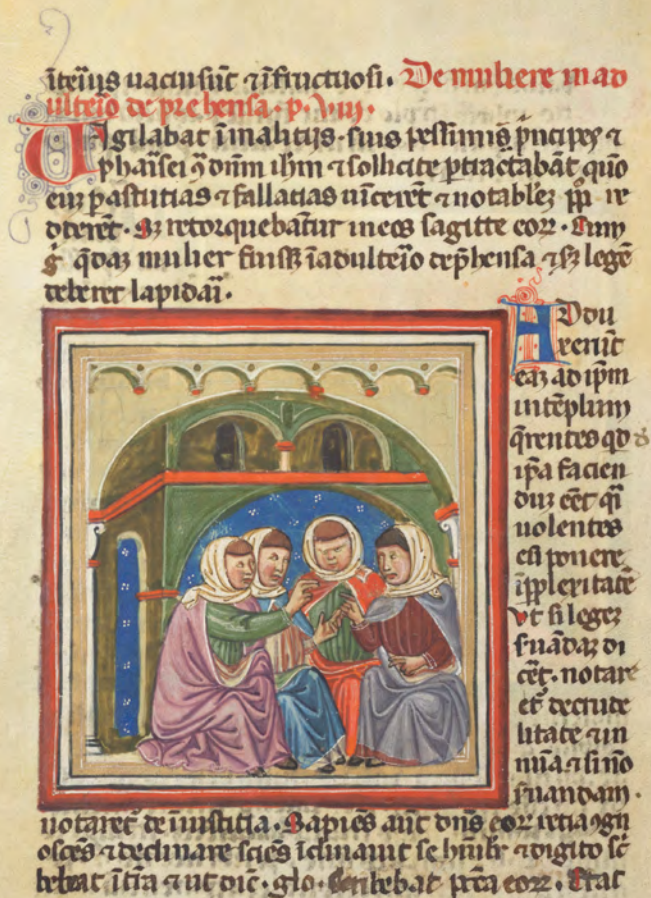 īteriꝰ uacui sūt ⁊ īfructuosi. De muliere in ad
ulterio de prehensa. p. Viii.
Vigilabat ī malicijs suis pessimis p̄ncipes ⁊
pharisei ꝯ dn̄m ih̄m ⁊ sollicite ꝑtractabāt quō
eū ꝑ astutias ⁊ fallatias uīcerēt ⁊ notabilez re
dderēt. Sz retorquebātur in eos sagitte eoꝝ. Cum
g̊ q̄daz mulier fuissꝫ ī adulterio dep̄hensa ⁊ sꝫ legē
deberet lapidari.
Addu
xerūt
eaz ad ip̄m
in tēplum
q̄rentes qd d̓
ip̄a facien
duz eēt q̄i
uolentes
eū ponere
ī ꝑplexitatē
vt si legez
ẜuādaz di
cēt. notaret̄
de crude
litate ⁊ in
⁊ si nō
ẜuandam.
notaret̄ de iniustitia. Sapiēs aut̄ dn̄s eoꝝ retia ꝯgn
oscēs ⁊ declinare sciēs īclinauit se hūilr̄ ⁊ digito sc̄
bebat ī tr̄a ⁊ ut dic̄. glo. scribebat pc̄a eoꝝ. Erat